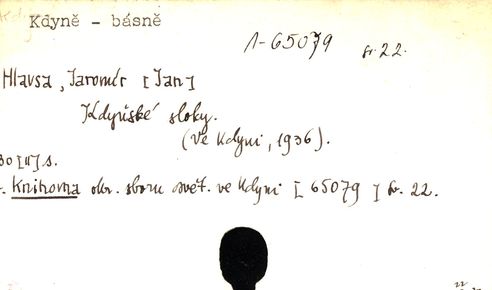 Kdyně - básně
1-65079 sv. 22.
Hlavsa, Jaromír [Jan]
Kdyňské sloky.
(Ve Kdyni, 1936).
30 [II] s.
Knihovna okr. sboru osvět. ve Kdyni [65079] sv. 22.
22